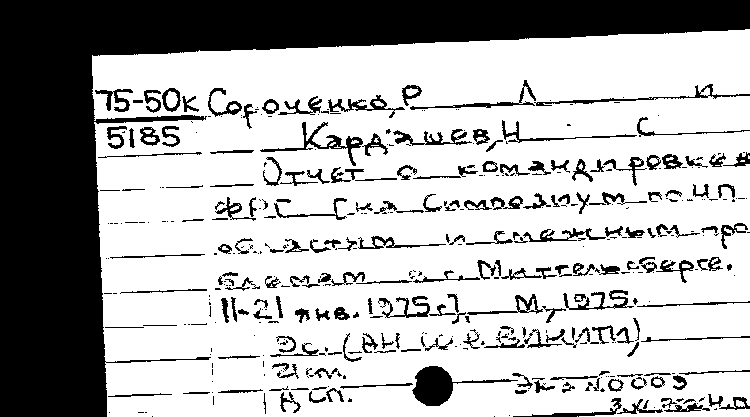 75-50к Сороченко, Р Л и
5185 Кардашев, Н С
Отчет о командировке в
ФРГ [на Симпозиум по НП
областям и смежным про
блемам в г. Миттельсберге.
11-21 янв. 1975 г.]. М., 1975.
Эс. (АН ВИНИТИ).
21 см.
ДСП. Экз N0003